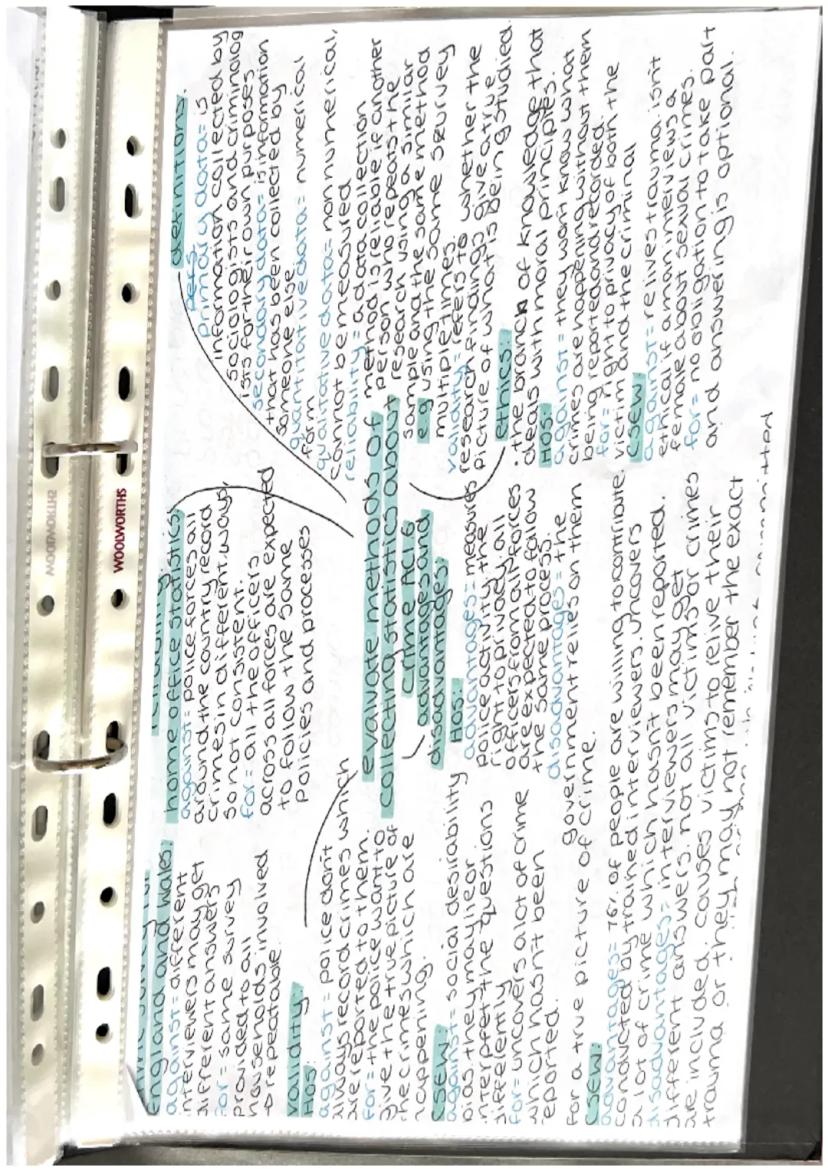 WOOLWORTHS
WOOLWORTHS
England and Wales:
against = different
interviewers may get
different answers
for = same survey
provided to all
households involved
repeatable.
reliability:
home office statistics
against = police forces all
around the country record
crimes in different ways,
so not consistent.
for = all the officers
across all forces are expected
to follow the same
policies and processes
definitions:
primary data = is
information collected by
sociologists and criminolog
ists for their own purposes
secondary data = is information
that has been collected by
someone else
quantitative data = numerical
form
qualitative data = non numerical,
cannot be measured
reliability = a data collection
method is reliable if another
person who repeats the
research using a similar
sample and the same method
e.g using the same survey
multiple times
validity = refers to whether the
research findings give a true
picture of what is being studied.
evaluate methods of
collecting statistics about
crime AC1.3
validity:
HOS:
against = police don't
always record crimes which
are reported to them.
for = the police want to
give the true picture of
the crimes which are
happening.
CSEW:
against = social desirability
bias, they may lie or
interpret the questions
differently
for = uncovers a lot of crime
which hasn't been
reported.
advantages and
disadvantages:
HOS:
advantages = measures
police activity, the
right to privacy, all
officers from all forces
are expected to follow
the same process.
disadvantages = the
government relies on them
for a true picture of crime.
CSEW:
advantages = 76% of people are willing to contribute.
conducted by trained interviewers, uncovers
a lot of crime which hasn't been reported.
disadvantages = interviewers may get
different answers, not all victims or crimes
are included. causes victims to relive their
trauma or they may not remember the exact
ethics:
• the branch of knowledge that
deals with moral principles.
HOS:
against = they won't know what
crimes are happening without them
being reported and recorded
for = right to privacy of both the
victim and the criminal
CSEW:
against = relives trauma, isn't
ethical if a man interviews a
female about sexual crimes.
for = no obligation to take part
and answering is optional.